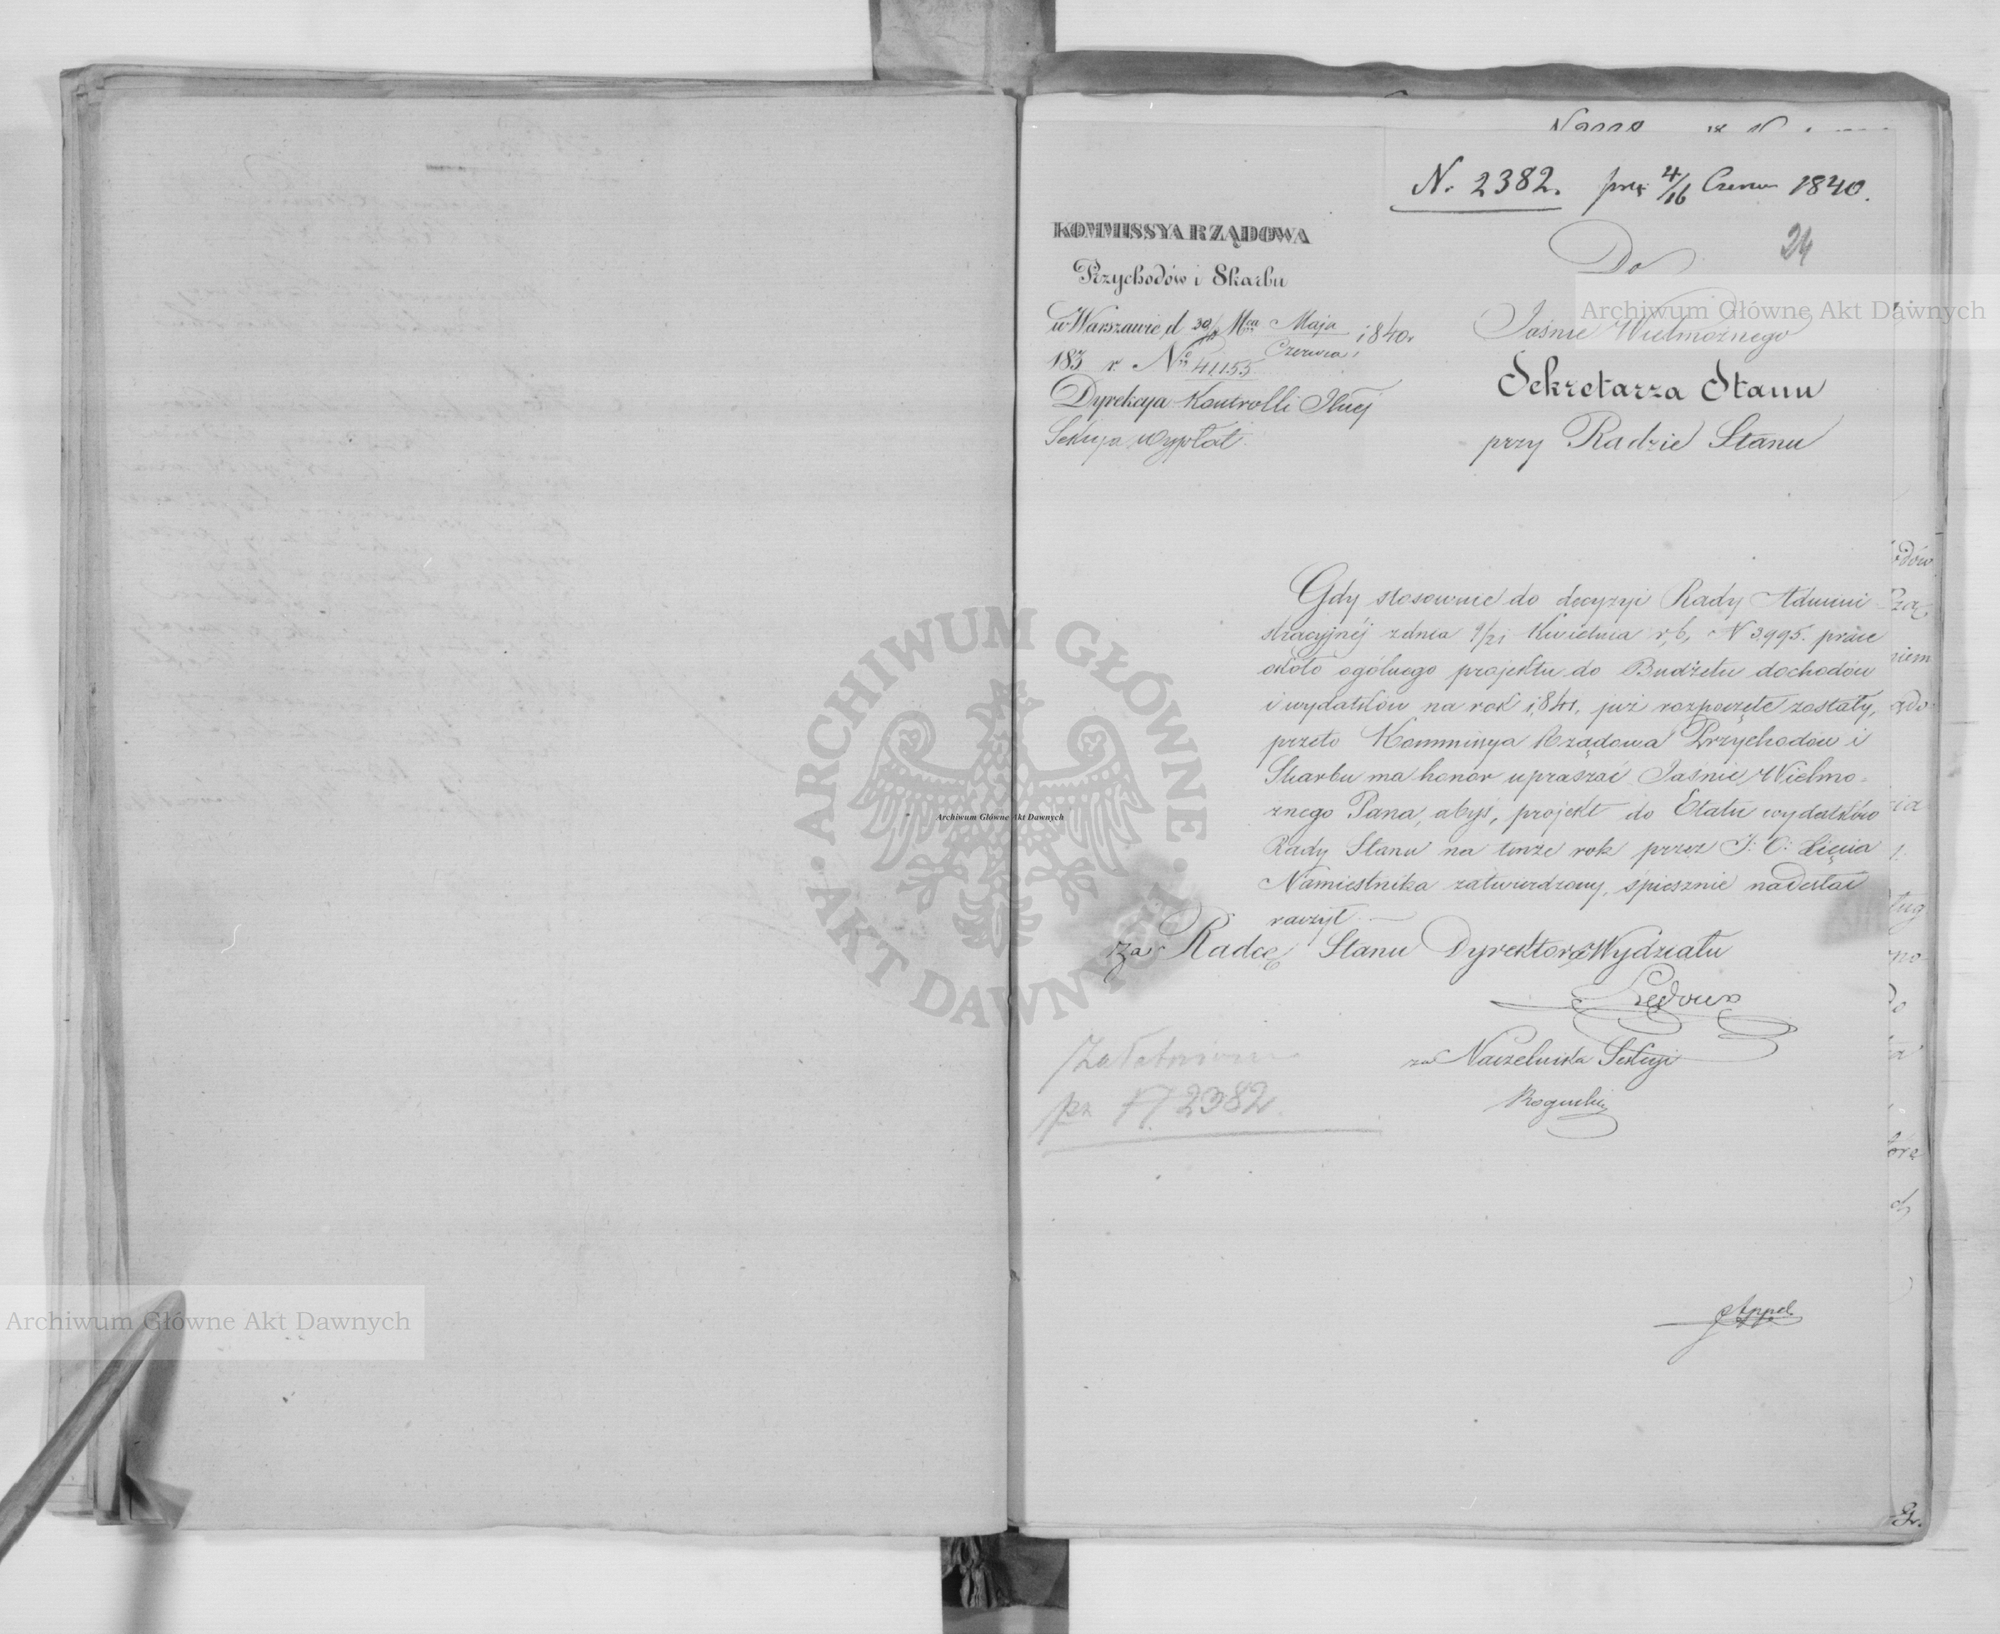 N. 2382. prz: 4/16 Czerw 1840.
24
KOMMISSYA RZĄDOWA
Przychodów i Skarbu
w Warszawie, d 30/ Mca Maja / Czerwca 1840.
183 r. No 41155
Dyrekcya Kontrolli Służ
Sekcya wypłat.
Do
Jaśnie Wielmożnego
Sekretarza Stanu
przy Radzie Stanu
Gdy stosownie do decyzyi Rady Admini
stracyjnéj z dnia 9/21 Kwietnia r, b, N 3995. prace
około ogólnego projektu do Budżetu dochodów
i wydatków na rok 1841, już rozpoczęte zostały,
przeto Kommissya Rządowa Przychodów i
Skarbu ma honor upraszać Jaśnie Wielmo-
żnego Pana, abyś, projekt do Etatu wydatków
Rady Stanu na tenże rok przez J: O: Xięcia
Namiestnika zatwierdzony, śpiesznie nadesłać
raczył.
za Radcę Stanu Dyrektora Wydziału
za Naczelnika Sekcyi
Załatwione
pr N 2382.
Appel
Archiwum Główne Akt Dawnych
Archiwum Główne Akt Dawnych
Archiwum Główne Akt Dawnych
ARCHIWUM GŁÓWNE AKT DAWNYCH